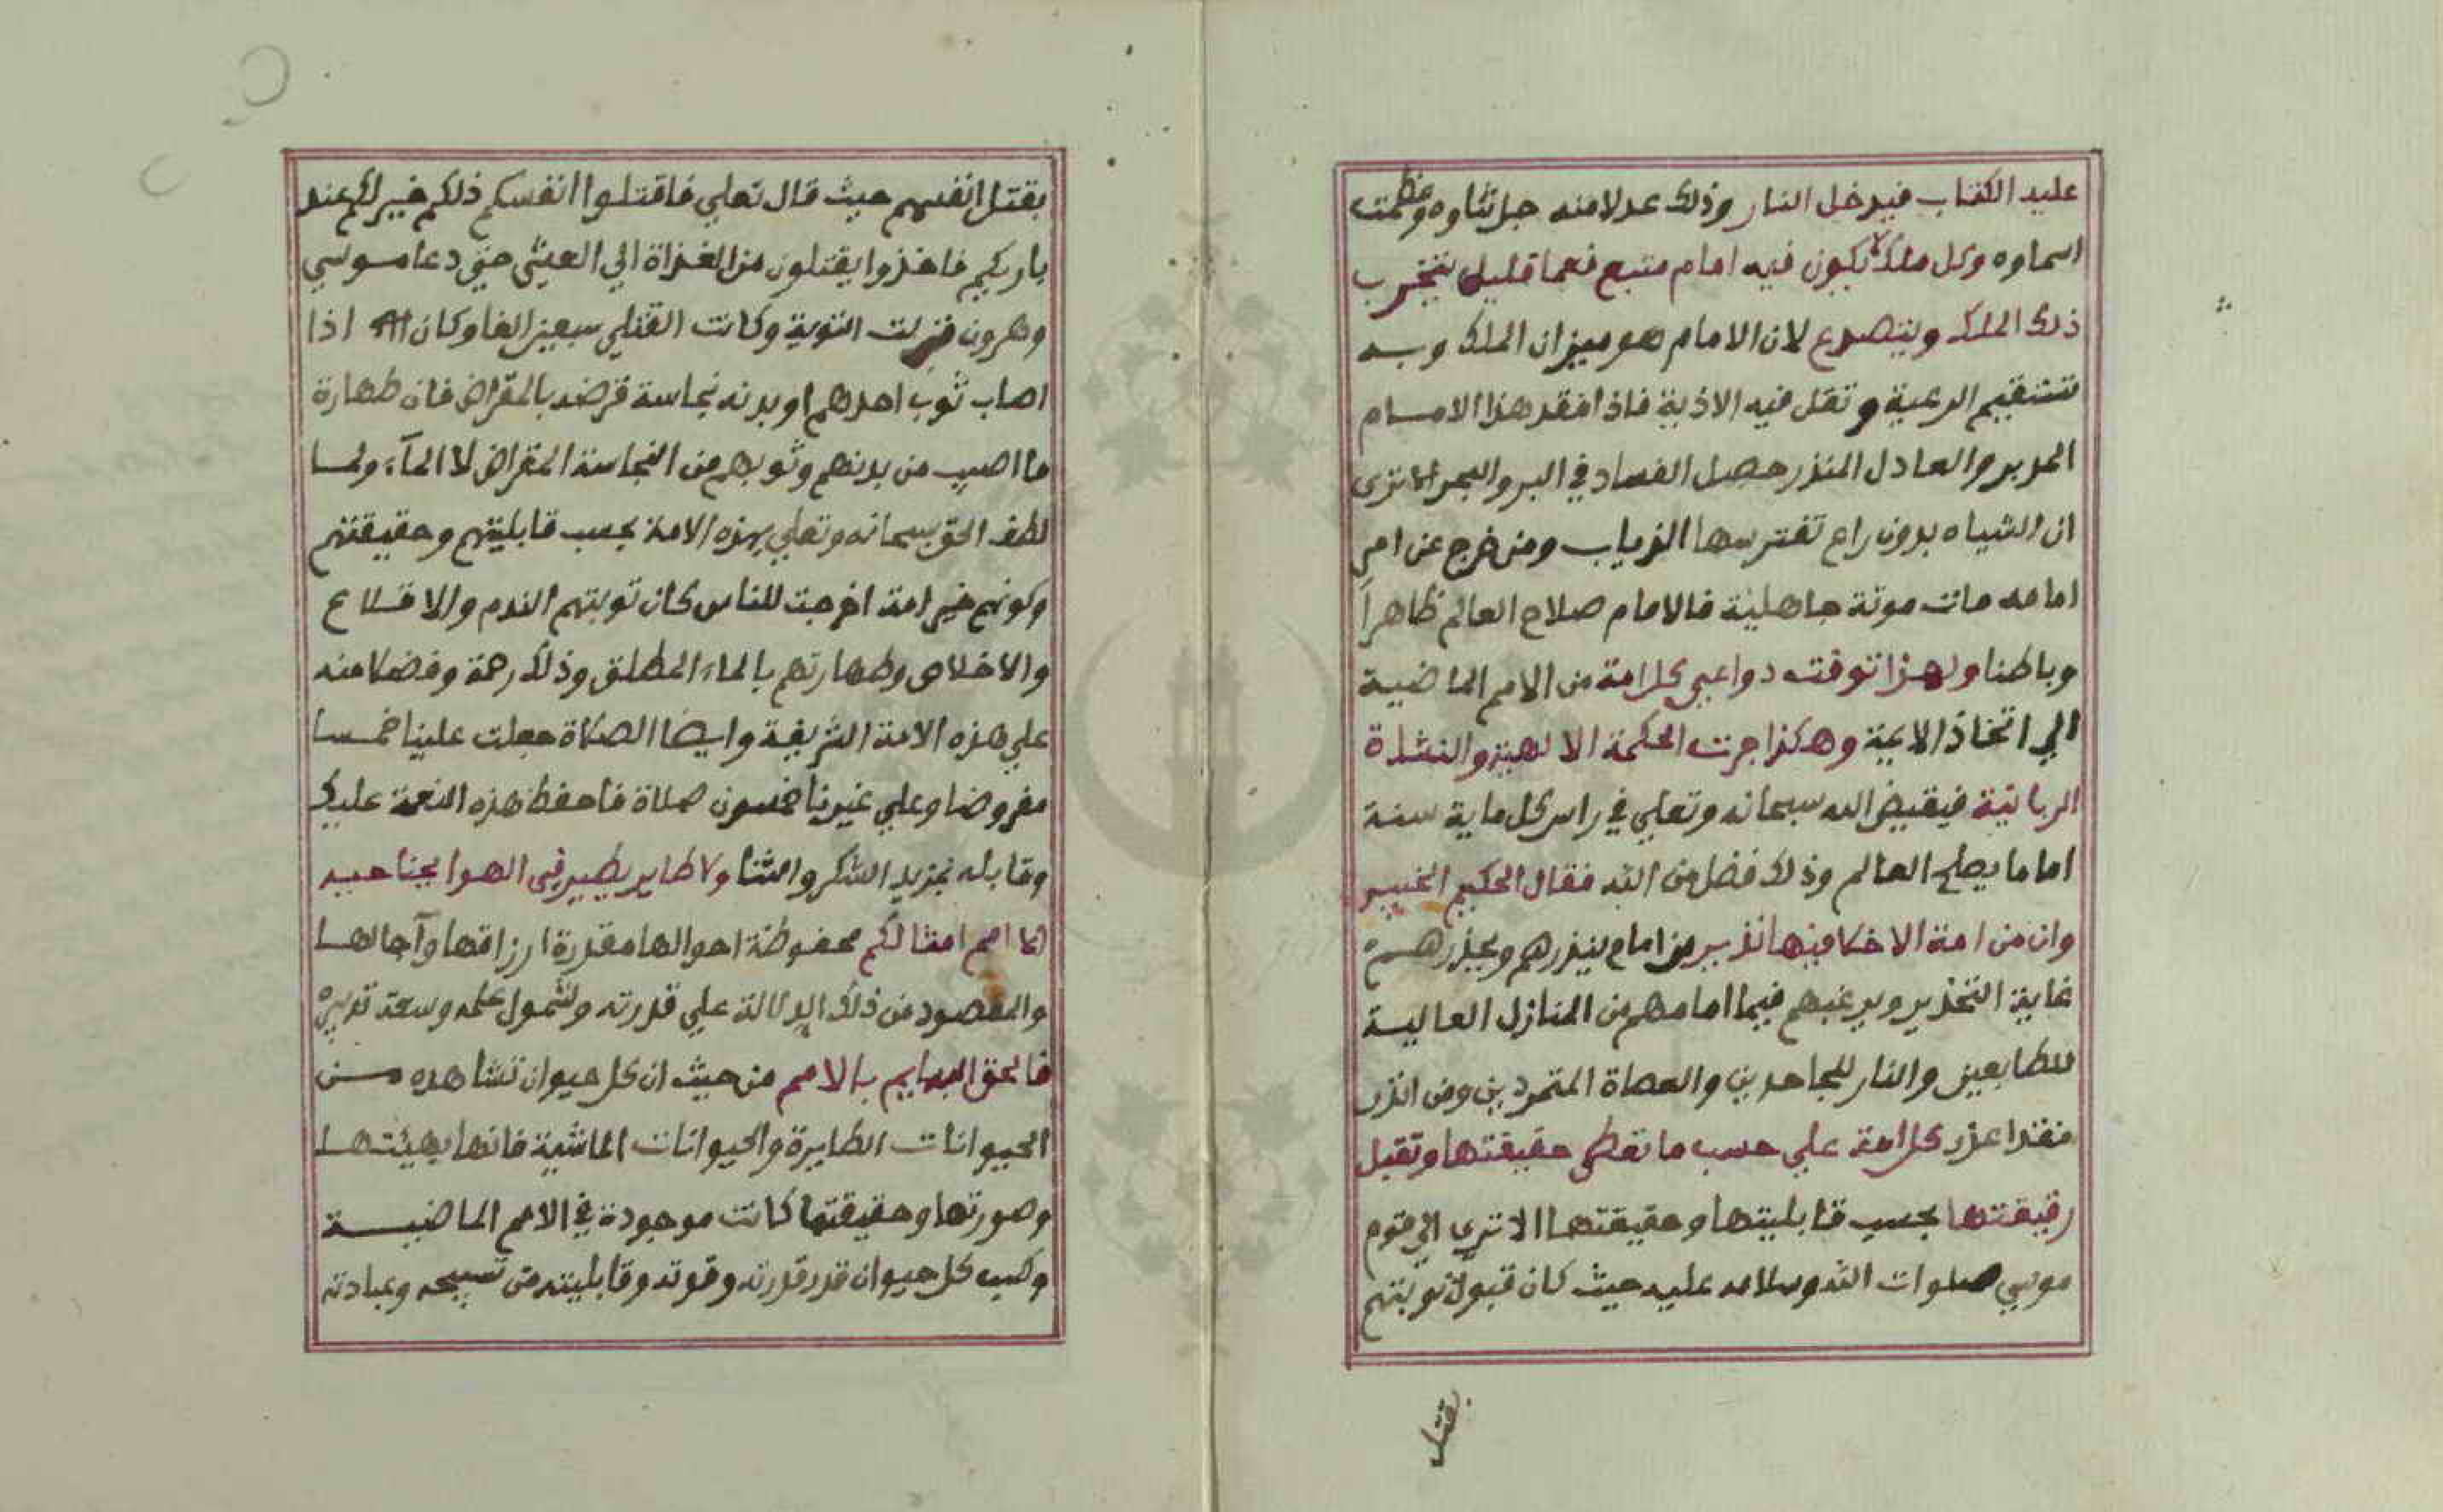 عليه الكتاب فيدخل النار وذلك عدلا منه جل ثناوه وعظمت
اسماوه وكل ملك لا يكون فيه امام متبع فعما قليل يتخرب
ذلك الملك ويتصدع لان الامام هو ميزان الملك وبه
تستقيم الرعية وتقل فيه الاذية فاذا فقد هذا الامام
المدبر والعادل المنذر حصل الفساد في البر والبحر اما تري
ان الشياه بدون راع تفترسها الذياب ومن خرج عن امر
امامه مات موتة جاهلية فالامام صلاح العالم ظاهراً
وباطنا ولهذا توفت دواعي كل امة من الامم الماضية
الي اتخاذ الايمة وهكذا جرت الحكمة الالهية والنشاة
الربانية فيقيض الله سبحانه وتعالي في راس كل ماية سنة
اماما يصلح العالم وذلك فضل من الله فقال الحكيم الخبير
وان من امة الا خلا فيها نذير من امام ينذرهم ويحذرهم
غاية التحذير ويرغبهم فيما امامهم من المنازل العالية
للطايعين والنار للجاحدين والعصاة المتمردين ومن انذر
فقد اعذر كل امة علي حسب ما تعطي حقيقتها وتقبل
رقيقتها بحسب قابليتها وحقيقتها الا تري الي قوم
موسي صلوات الله وسلامه عليه حيث كان قبول توبتهم
بقتل
بقتل انفسهم حيث قال تعلي فاقتلوا انفسكم ذلكم خير لكم عند
باريكم فاخذوا يقتلون من الغداة الي العشي حتي دعا موسي
وهرون فنزلت التوبة وكانت القتلي سبعين الفا وكان اذا
اصاب ثوب احدهم او بدنه نجاسة قرضه بالمقراض فان طهارة
ما اصيب من بدنهم وثوبهم من النجاسة المقراض لا المآء ولما
لطف الحق سبحانه وتعلي بهذه الامة بحسب قابليتهم وحقيقتهم
وكونهم خير امة اخرجت للناس كان توبتهم الندم والاقلاع
والاخلاص وطهارتهم بالماء المطلق وذلك رحمة وفضلا منه
علي هذه الامة الشريفة وايضا الصلاة جعلت علينا خمسا
مفروضا وعلي غيرنا خمسون صلاة فاحفظ هذه النعمة عليك
وقابله بمزيد الشكر والثنا ولا طاير يطير في الهوا بجناحيه
الا امم امثالكم محفوظة احوالها مقدرة ارزاقها وآجالها
والمقصود من ذلك الدلالة علي قدرته وشمول علمه وسعة تدبيره
فالحق البهايم بالامم من حيث ان كل حيوان تشاهده من
الحيوانات الطايرة والحيوانات الماشية فانها بهيئتها
وصورتها وحقيقتها كانت موجودة في الامم الماضية
وكسب كل حيوان قدر قدرته وقوته وقابليته من تسبيحه وعبادته